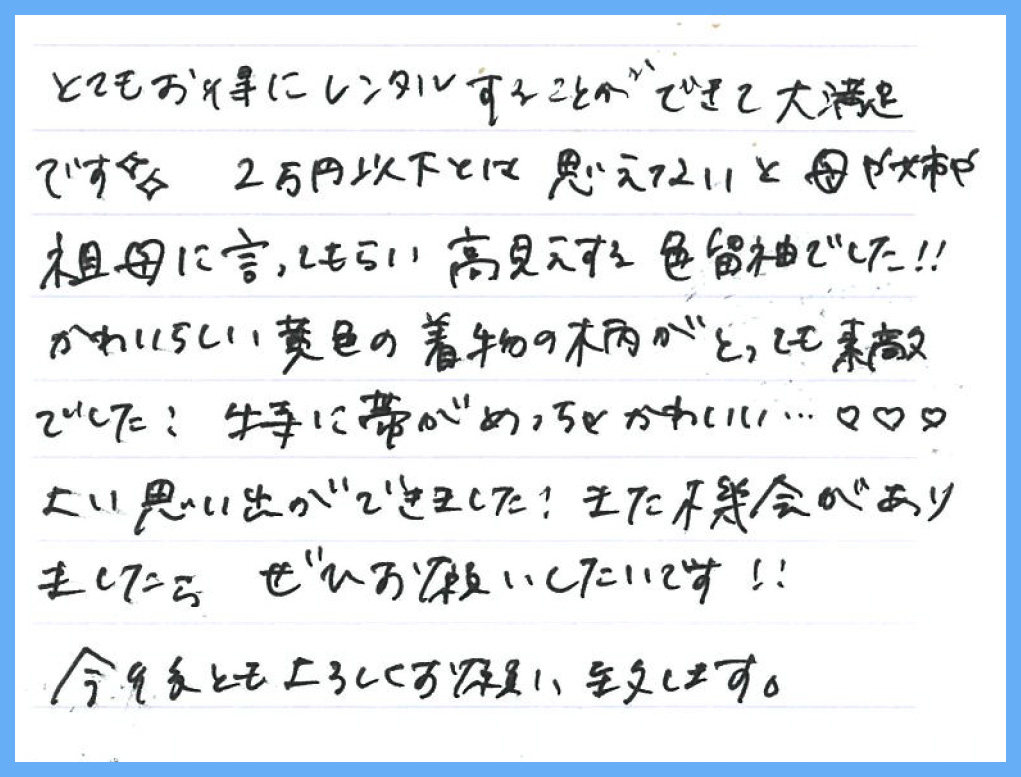 とてもお得にレンタルすることができて大満足
です✧✧ 2万円以下とは思えないと母や姉や
祖母に言ってもらい高見えする色留袖でした!!
かわいらしい黄色の着物の柄がとっても素敵
でした! 特に帯がめっちゃかわいい…♡♡♡
よい思い出ができました! また機会があり
ましたら ぜひお願いしたいです!!
今後ともよろしくお願い致します。